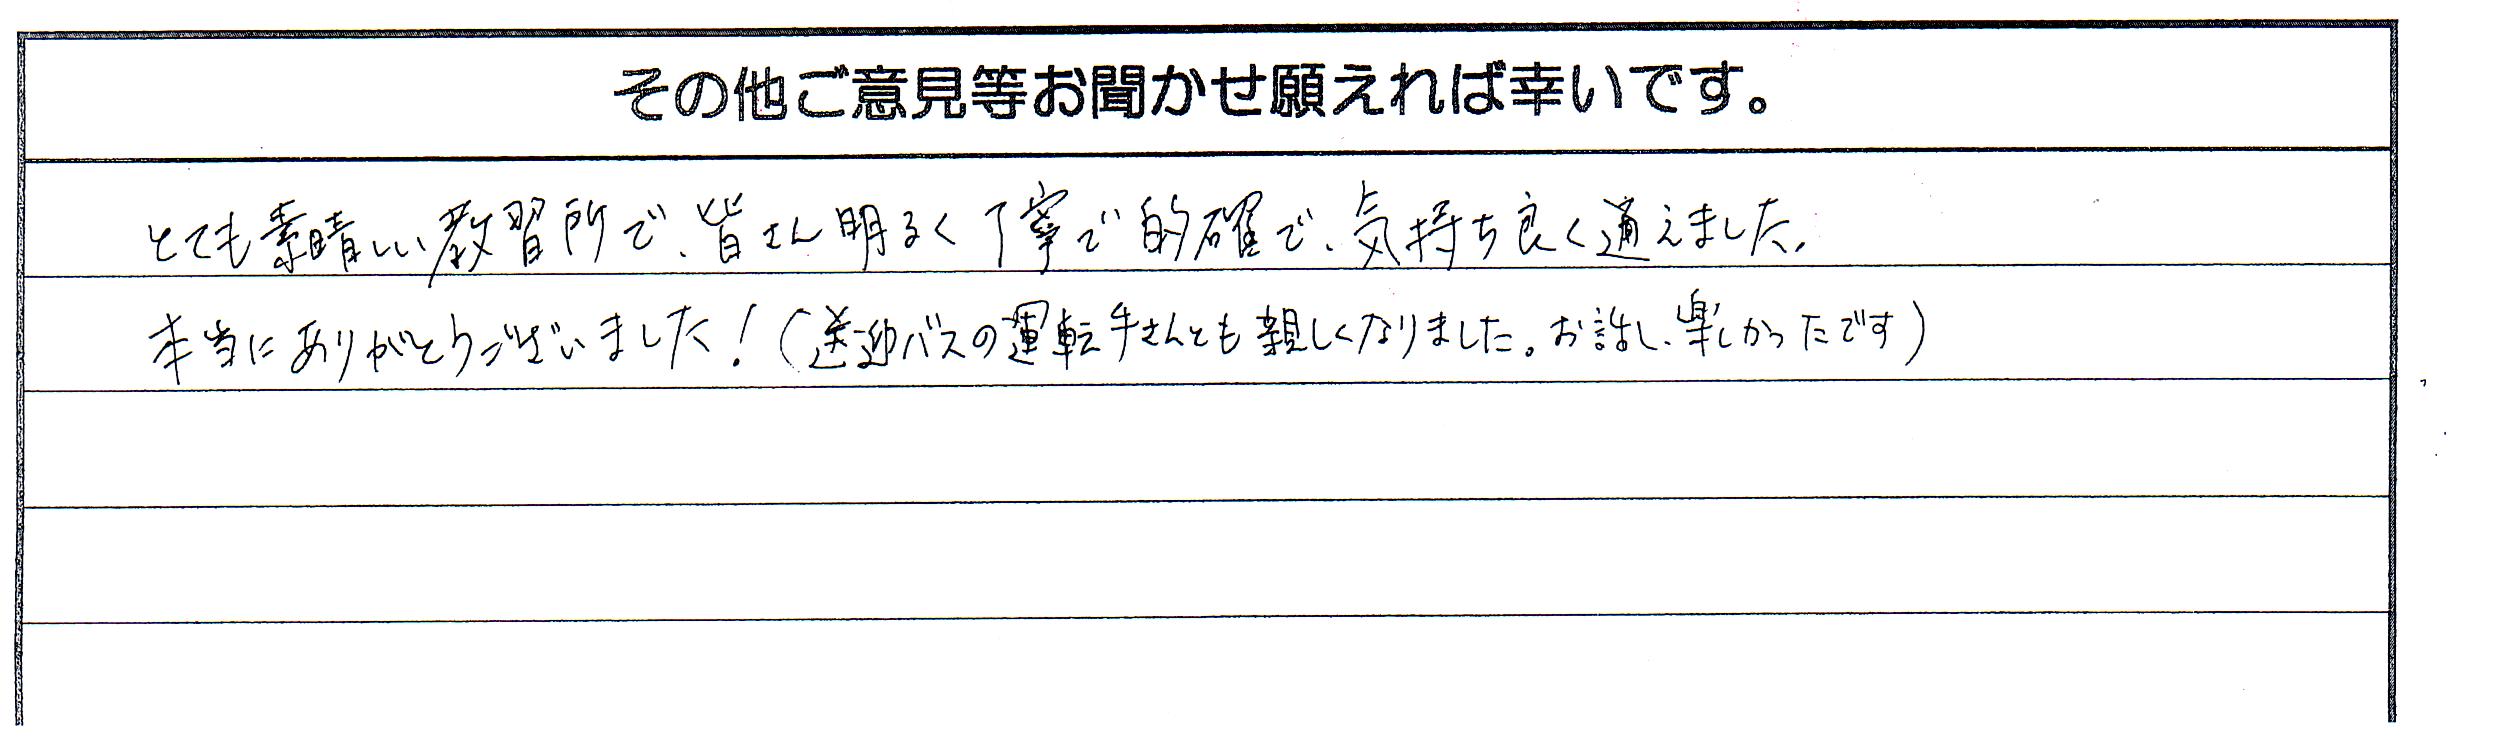 その他ご意見等お聞かせ願えれば幸いです。
とても素晴しい教習所で、皆さん明るく丁寧で的確で、気持ち良く通えました。
本当にありがとうございました!(送迎バスの運転手さんとも親しくなりました。お話し、楽しかったです)